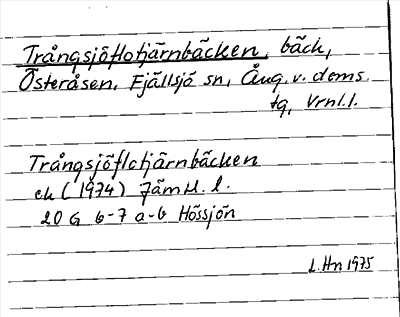 Trångsjöflotjärnbäcken, bäck,
Österåsen, Fjällsjö sn, Ång. v. doms.
tg, Vrnl.l.
Trångsjöflotjärnbäcken
ek (1974) Jämtl. l.
20 G 6-7 a-b Hössjön
L. Hn 1975